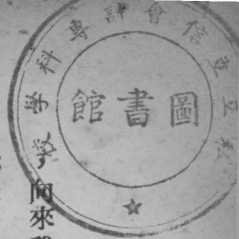 私立立信會計專科學校
圖書館
向來